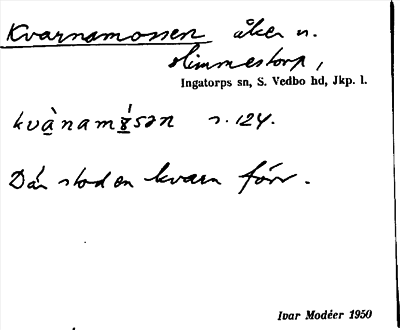 Kvarnamossen åker n.
Slimmestorp,
Ingatorps sn, S. Vedbo hd, Jkp. l.
kvànamɤ́sən s. 124.
Där stod en kvarn förr.
Ivar Modéer 1950